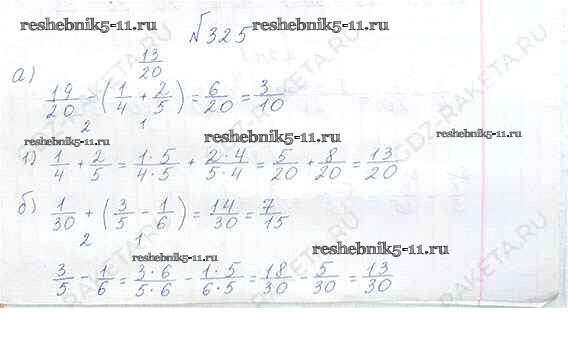 reshebnik5-11.ru №325 reshebnik5-11.ru
13/20
а) 19/20 - (1/4 + 2/5) = 6/20 = 3/10
2 1
reshebnik5-11.ru reshebnik5-11.ru reshebnik5-11.ru
1) 1/4 + 2/5 = 1·5/4·5 + 2·4/5·4 = 5/20 + 8/20 = 13/20
б) 1/30 + (3/5 - 1/6) = 14/30 = 7/15
2 1
reshebnik5-11.ru reshebnik5-11.ru
3/5 - 1/6 = 3·6/5·6 - 1·5/6·5 = 18/30 - 5/30 = 13/30
GDZ-RAKETA.RU